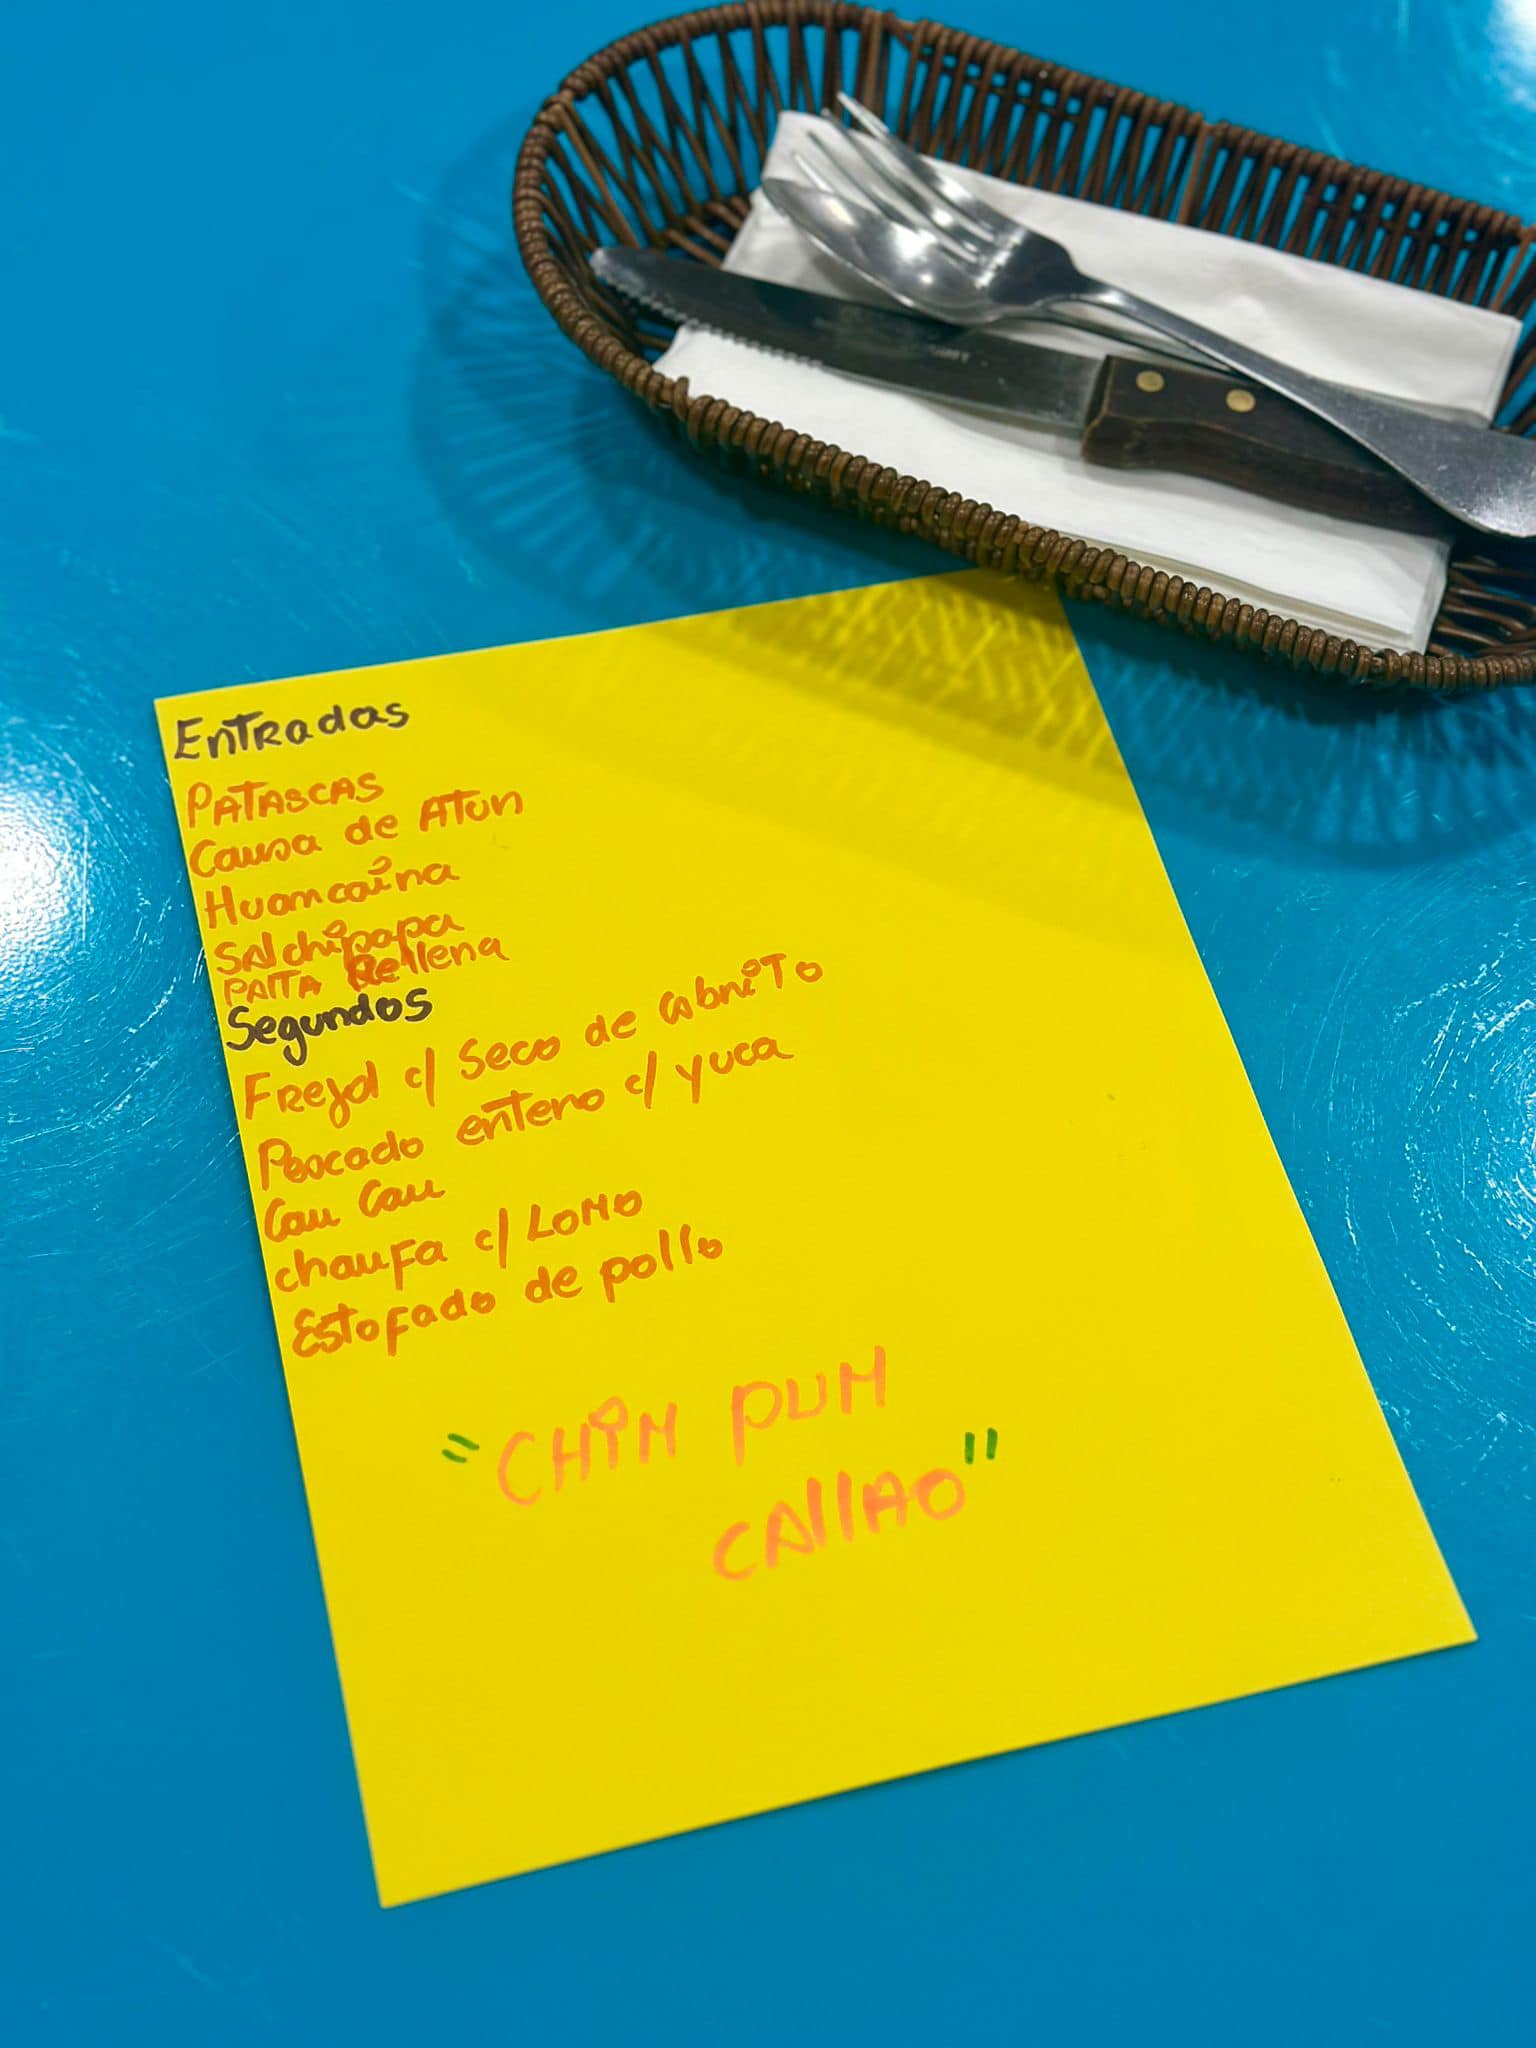 Entradas
PATASCAS
Causa de Atun
Huancaina
Salchipapa
PALTA Rellena
Segundos
Frejol c/ Seco de Cabrito
Pescado entero c/ yuca
Cau Cau
chaufa c/ Lomo
Estofado de pollo
"CHIM PUM
CAllAO"